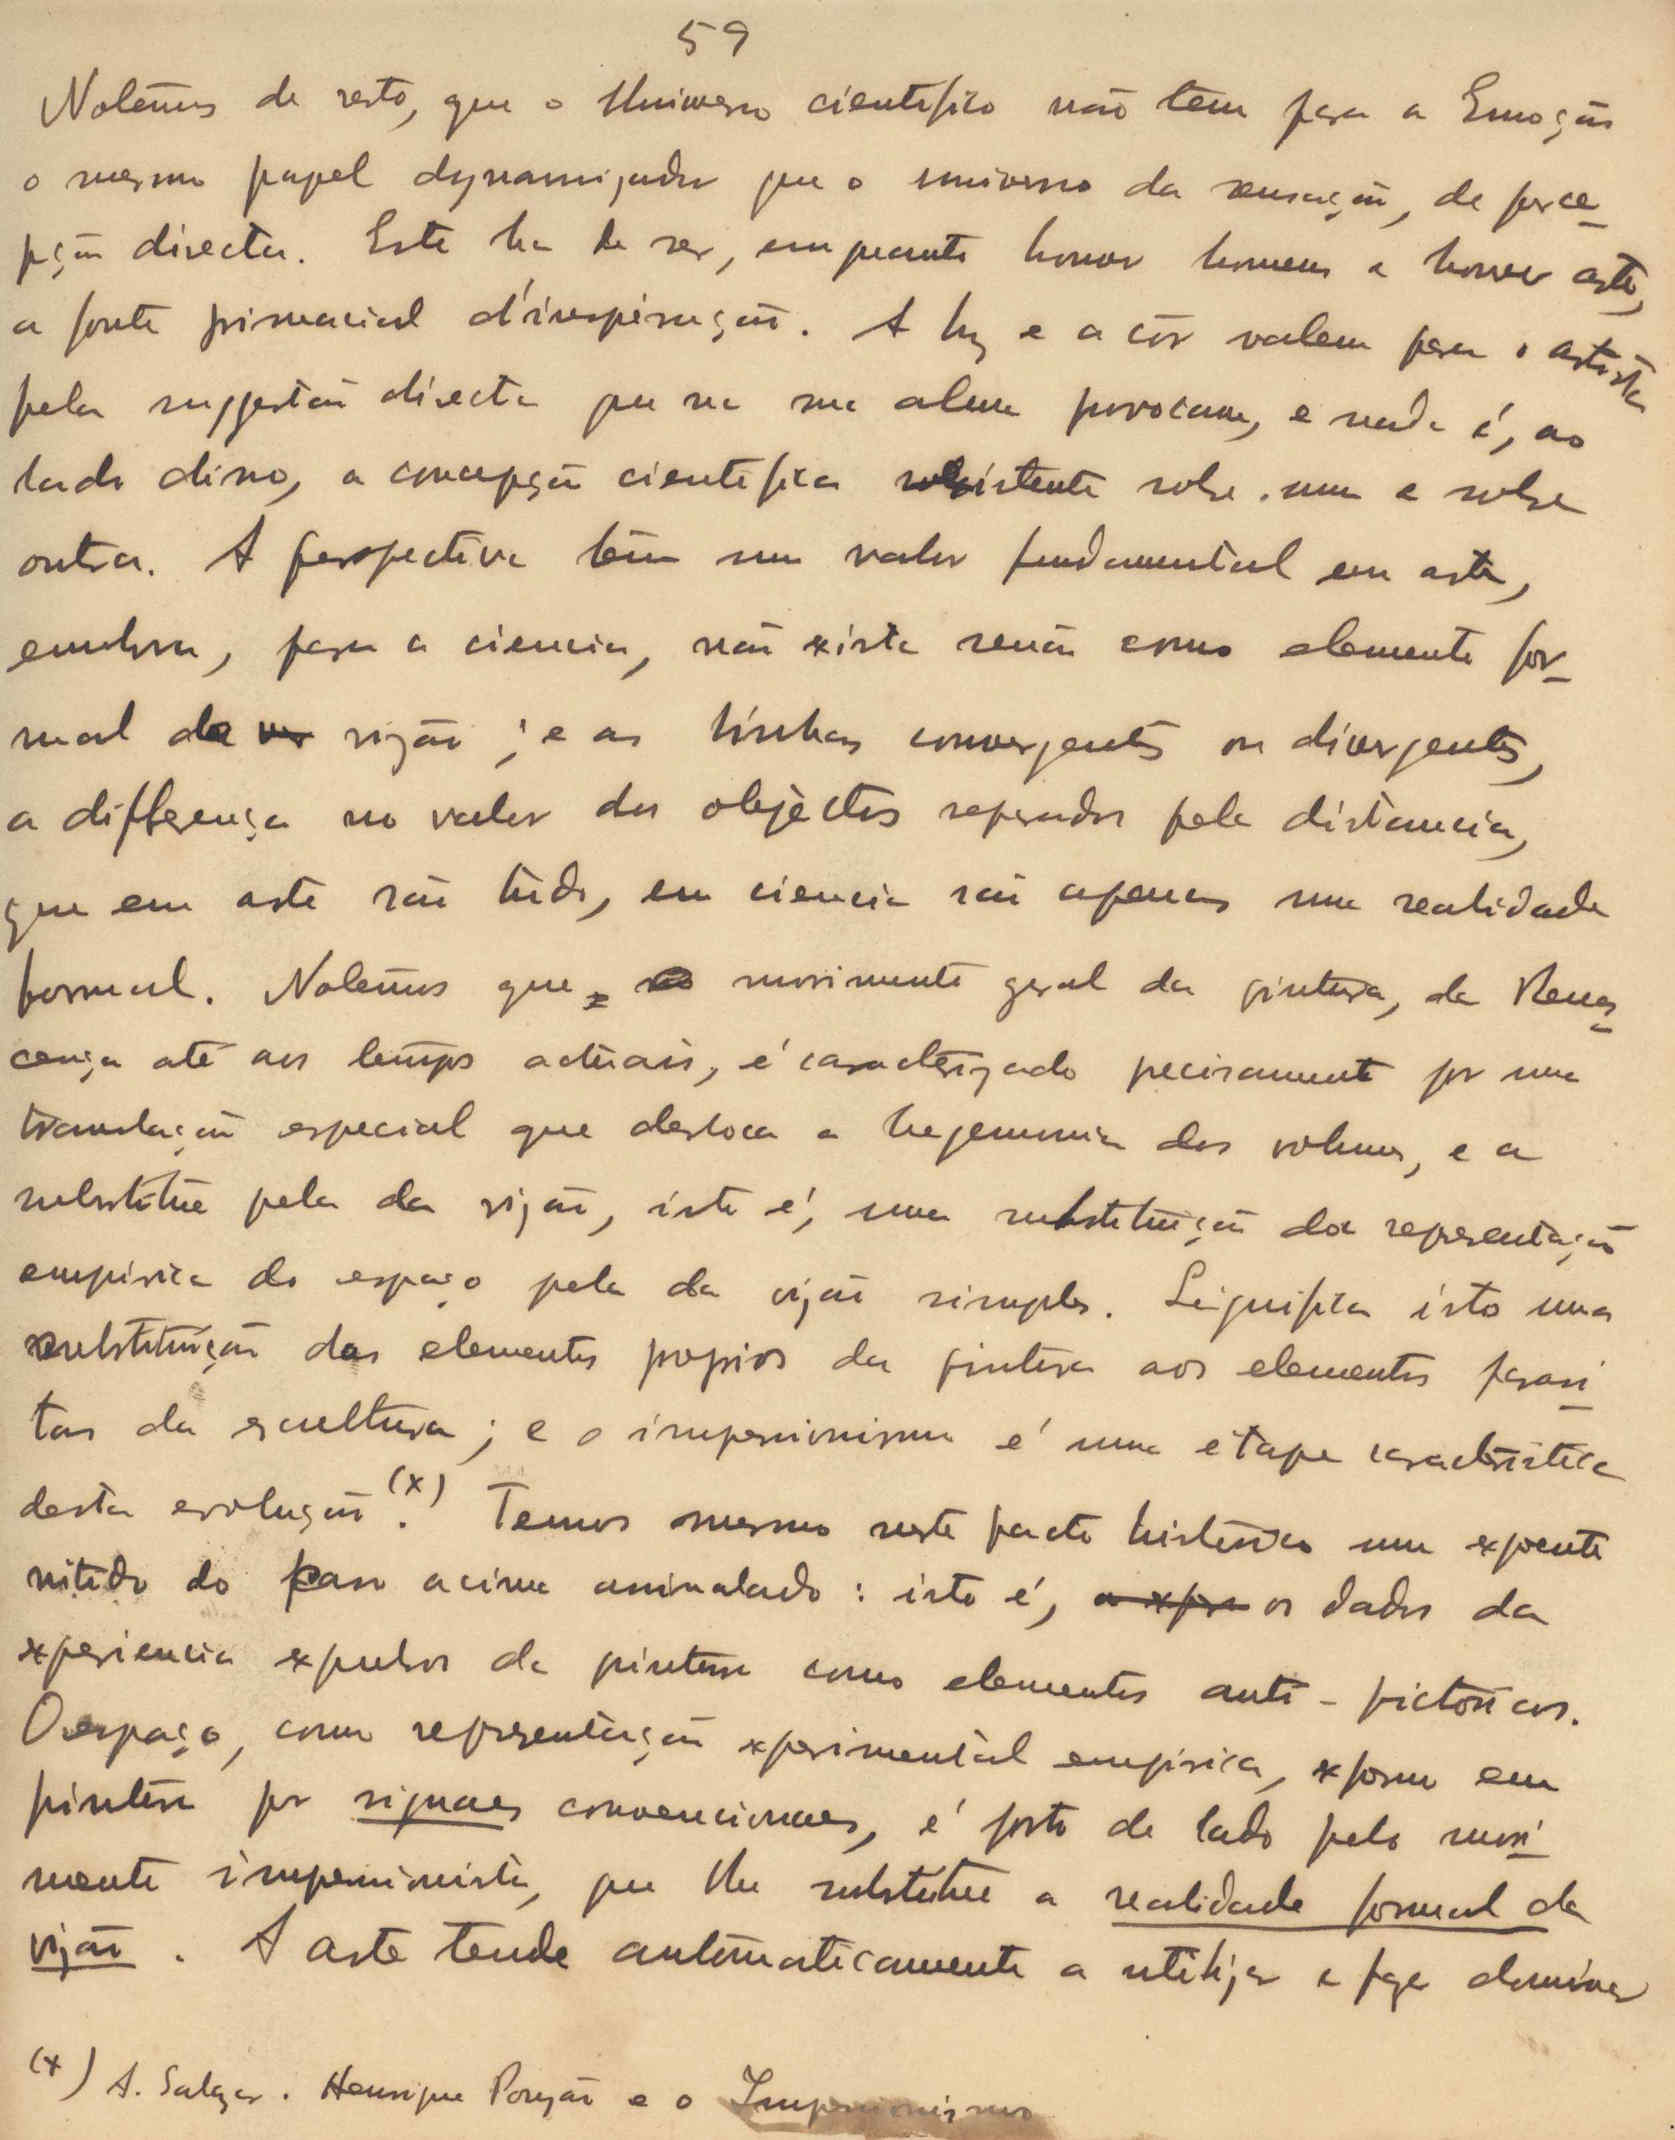 59
Notemos de resto, que o Universo cientifico não tem para a Emoção
o mesmo papel dynamizador que o universo da sensação, da perce-
pção directa. Este ha de ser, emquanto houver homens e houver arte,
a fonte primacial d'inspiração. A luz e a côr valem para o artista
pela suggestão directa que na sua alma provocam, e nada é, ao
lado disso, a concepção cientifica subsistente sobre uma e sobre
outra. A perspectiva tem um valor fundamental em arte,
embora, para a ciencia, não exista senão como elemento for-
mal da visão; e as linhas convergentes ou divergentes,
a differença no valor dos objectos separados pela distancia,
que em arte são tudo, em ciencia são apenas uma realidade
formal. Notemos que o movimento geral da pintura, da Renas-
cença até aos tempos actuais, é caracterizado precisamente por uma
translação especial que desloca a hegemonia dos volumes, e a
substitue pela da visão, isto é, uma substituição da representação
empirica do espaço pela da visão simples. Significa isto uma
substituição dos elementos proprios da pintura aos elementos parasi-
tas da escultura; e o impressionismo é uma étape caracteristica
desta evolução (x). Temos mesmo neste facto historico um expoente
nitido do caso acima assinalado: isto é, os dados da
experiencia expulsos da pintura como elementos anti-pictóricos.
O espaço, como representação experimental empirica, expresso em
pintura por signaes convencionaes, é posto de lado pelo movi-
mento impressionista, que lhe substitue a realidade formal da
visão. A arte tende automaticamente a utilizar e fazer dominar
(x) A. Salazar. Henrique Pousão e o Impressionismo